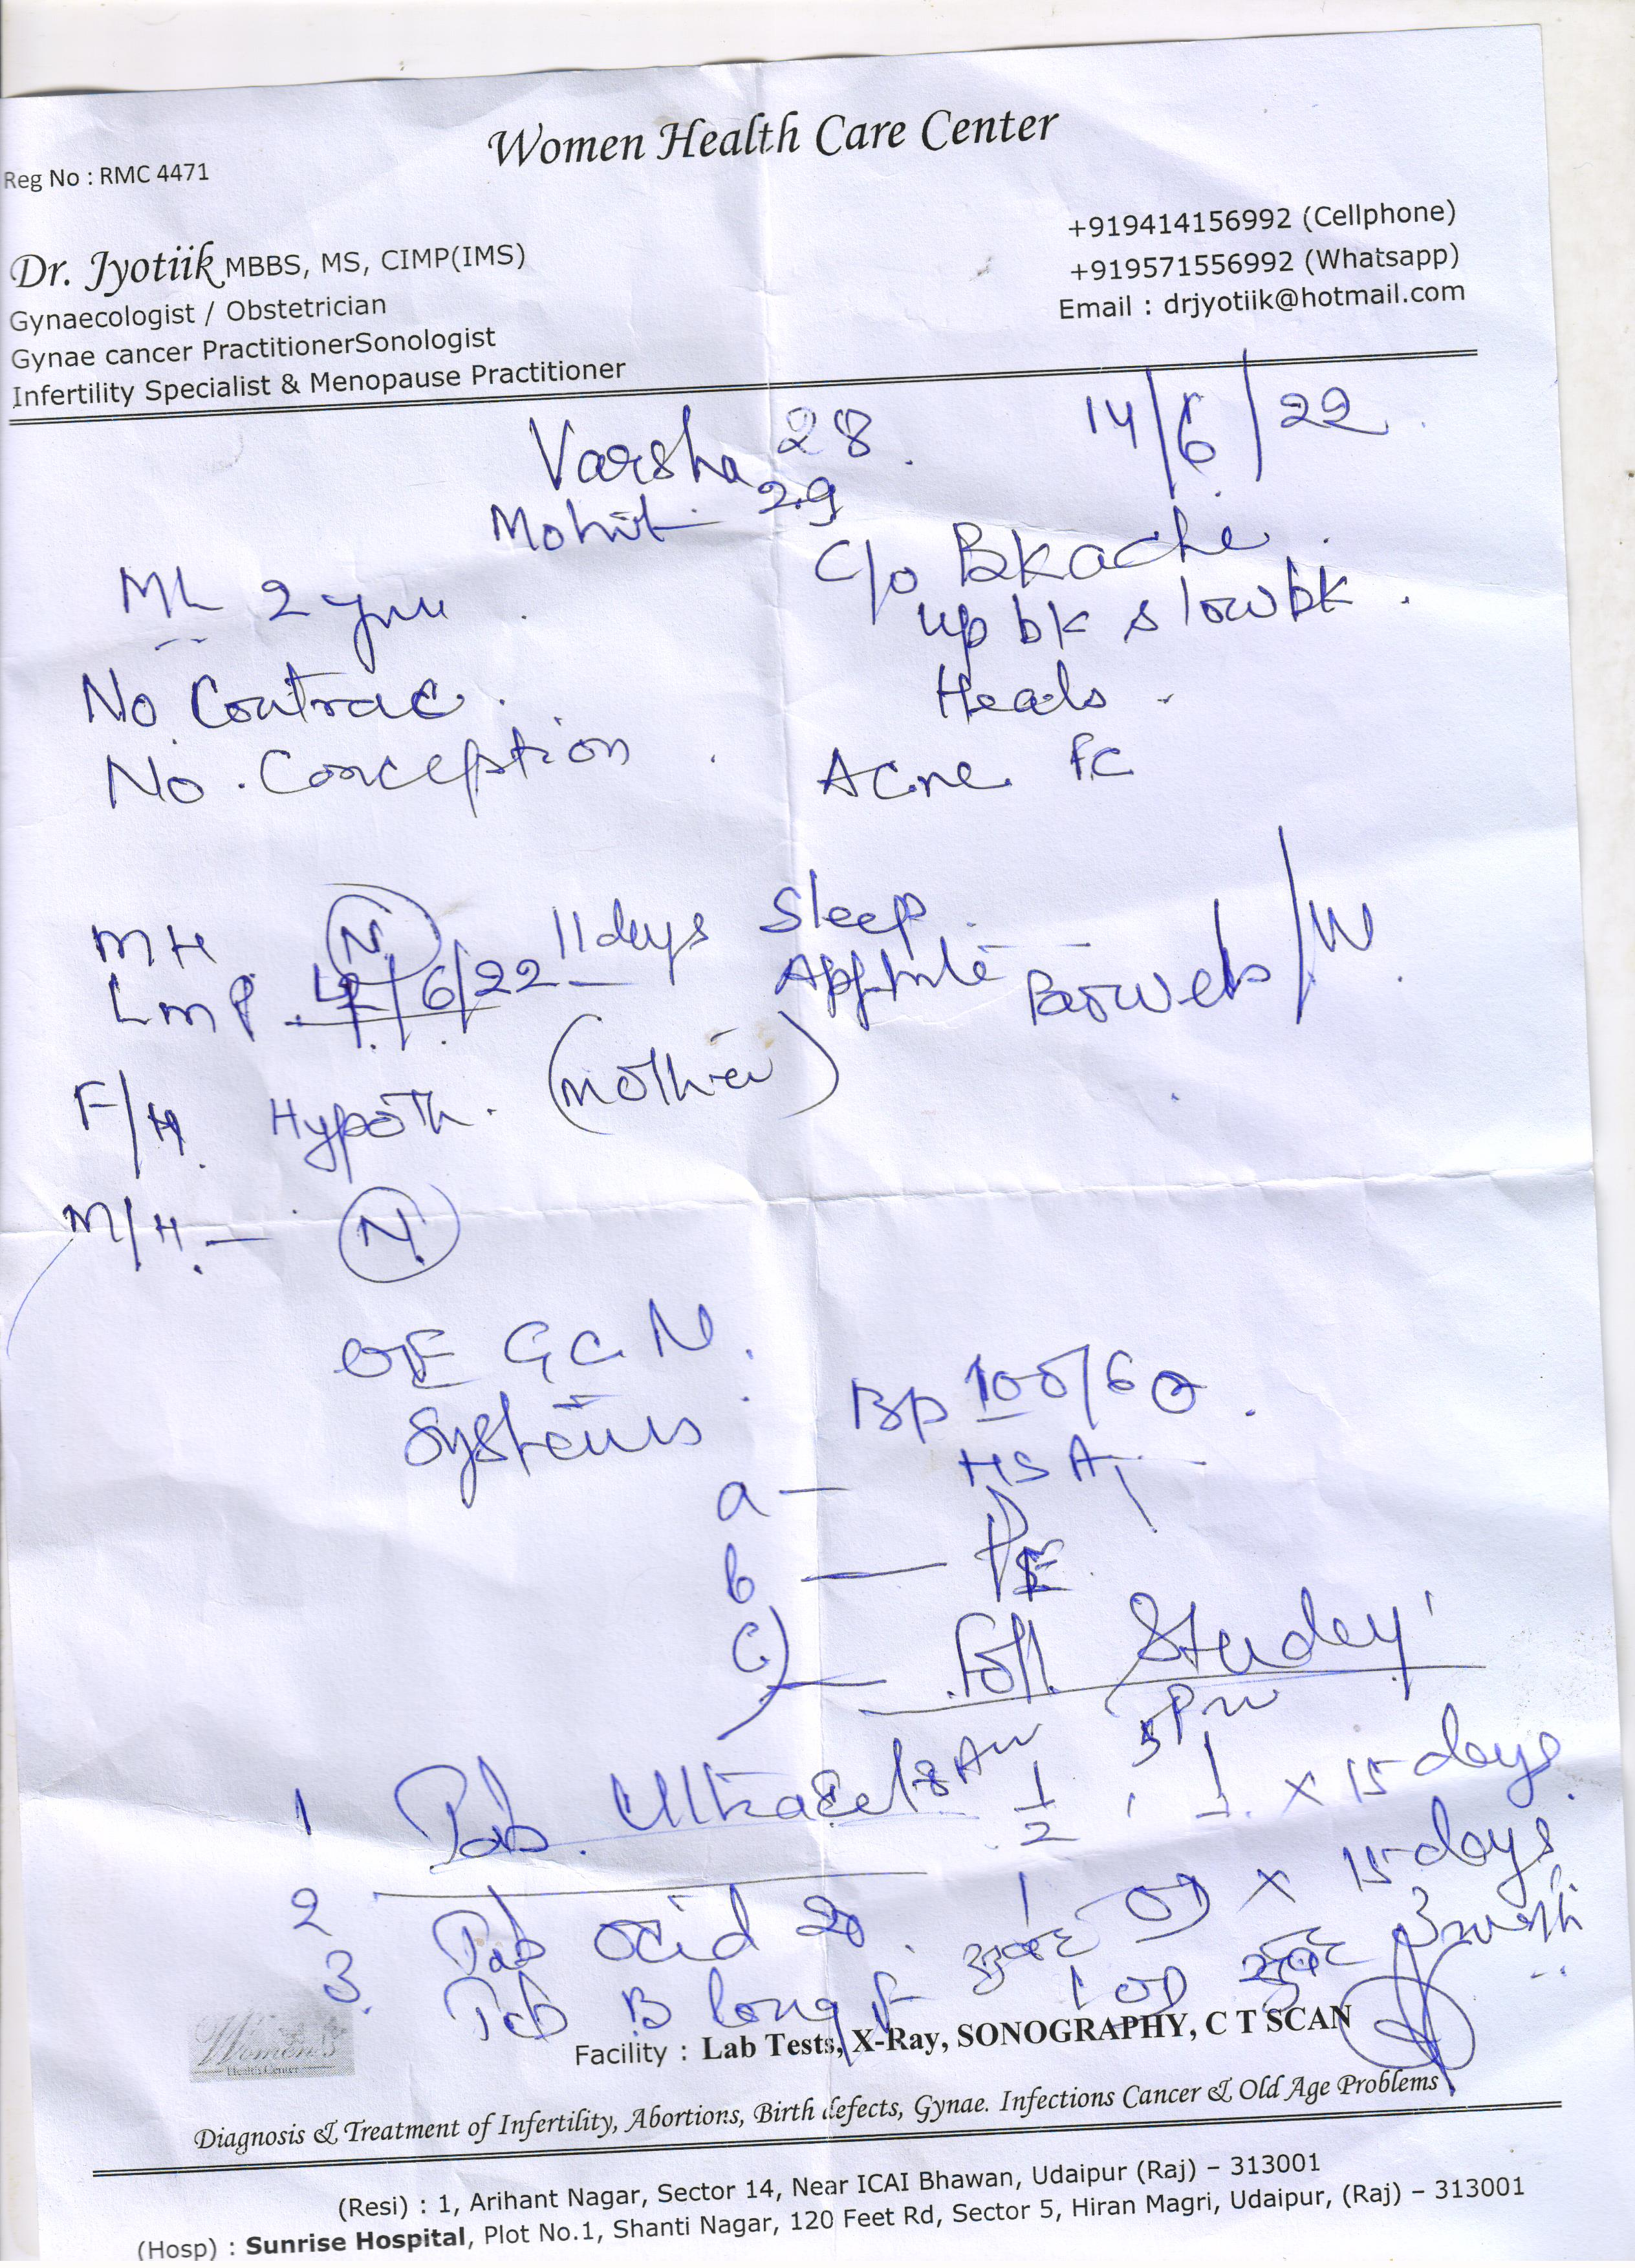 Women Health Care Center
Reg No : RMC 4471
+919414156992 (Cellphone)
+919571556992 (Whatsapp)
Email : drjyotiik@hotmail.com
Dr. Jyotiik MBBS, MS, CIMP(IMS)
Gynaecologist / Obstetrician
Gynae cancer PractitionerSonologist
Infertility Specialist & Menopause Practitioner
Varsha 28
14/6/22
Mohit 29
C/o Bkache
ML 2
up bk lowbk
No Contrac
Heals
No. Conception
Acne FC
MH N 11 days Sleep
LmP /6/22
F/H Hypoth. (mother)
M/H - N
OE G.C. N.
Systems
BP 100/60
a - HSA
b -
c) - Foll. Study
1 Tab. 8 AM 1/2, 5 PM 1 x 15 days
2 Tab 20 1 OD x 15 days
3. Tab B long F 1 OD
Women's
Health Center
Facility : Lab Tests, X-Ray, SONOGRAPHY, C T SCAN
Diagnosis & Treatment of Infertility, Abortions, Birth defects, Gynae. Infections Cancer & Old Age Problems
(Resi) : 1, Arihant Nagar, Sector 14, Near ICAI Bhawan, Udaipur (Raj) – 313001
(Hosp) : Sunrise Hospital, Plot No.1, Shanti Nagar, 120 Feet Rd, Sector 5, Hiran Magri, Udaipur, (Raj) – 313001